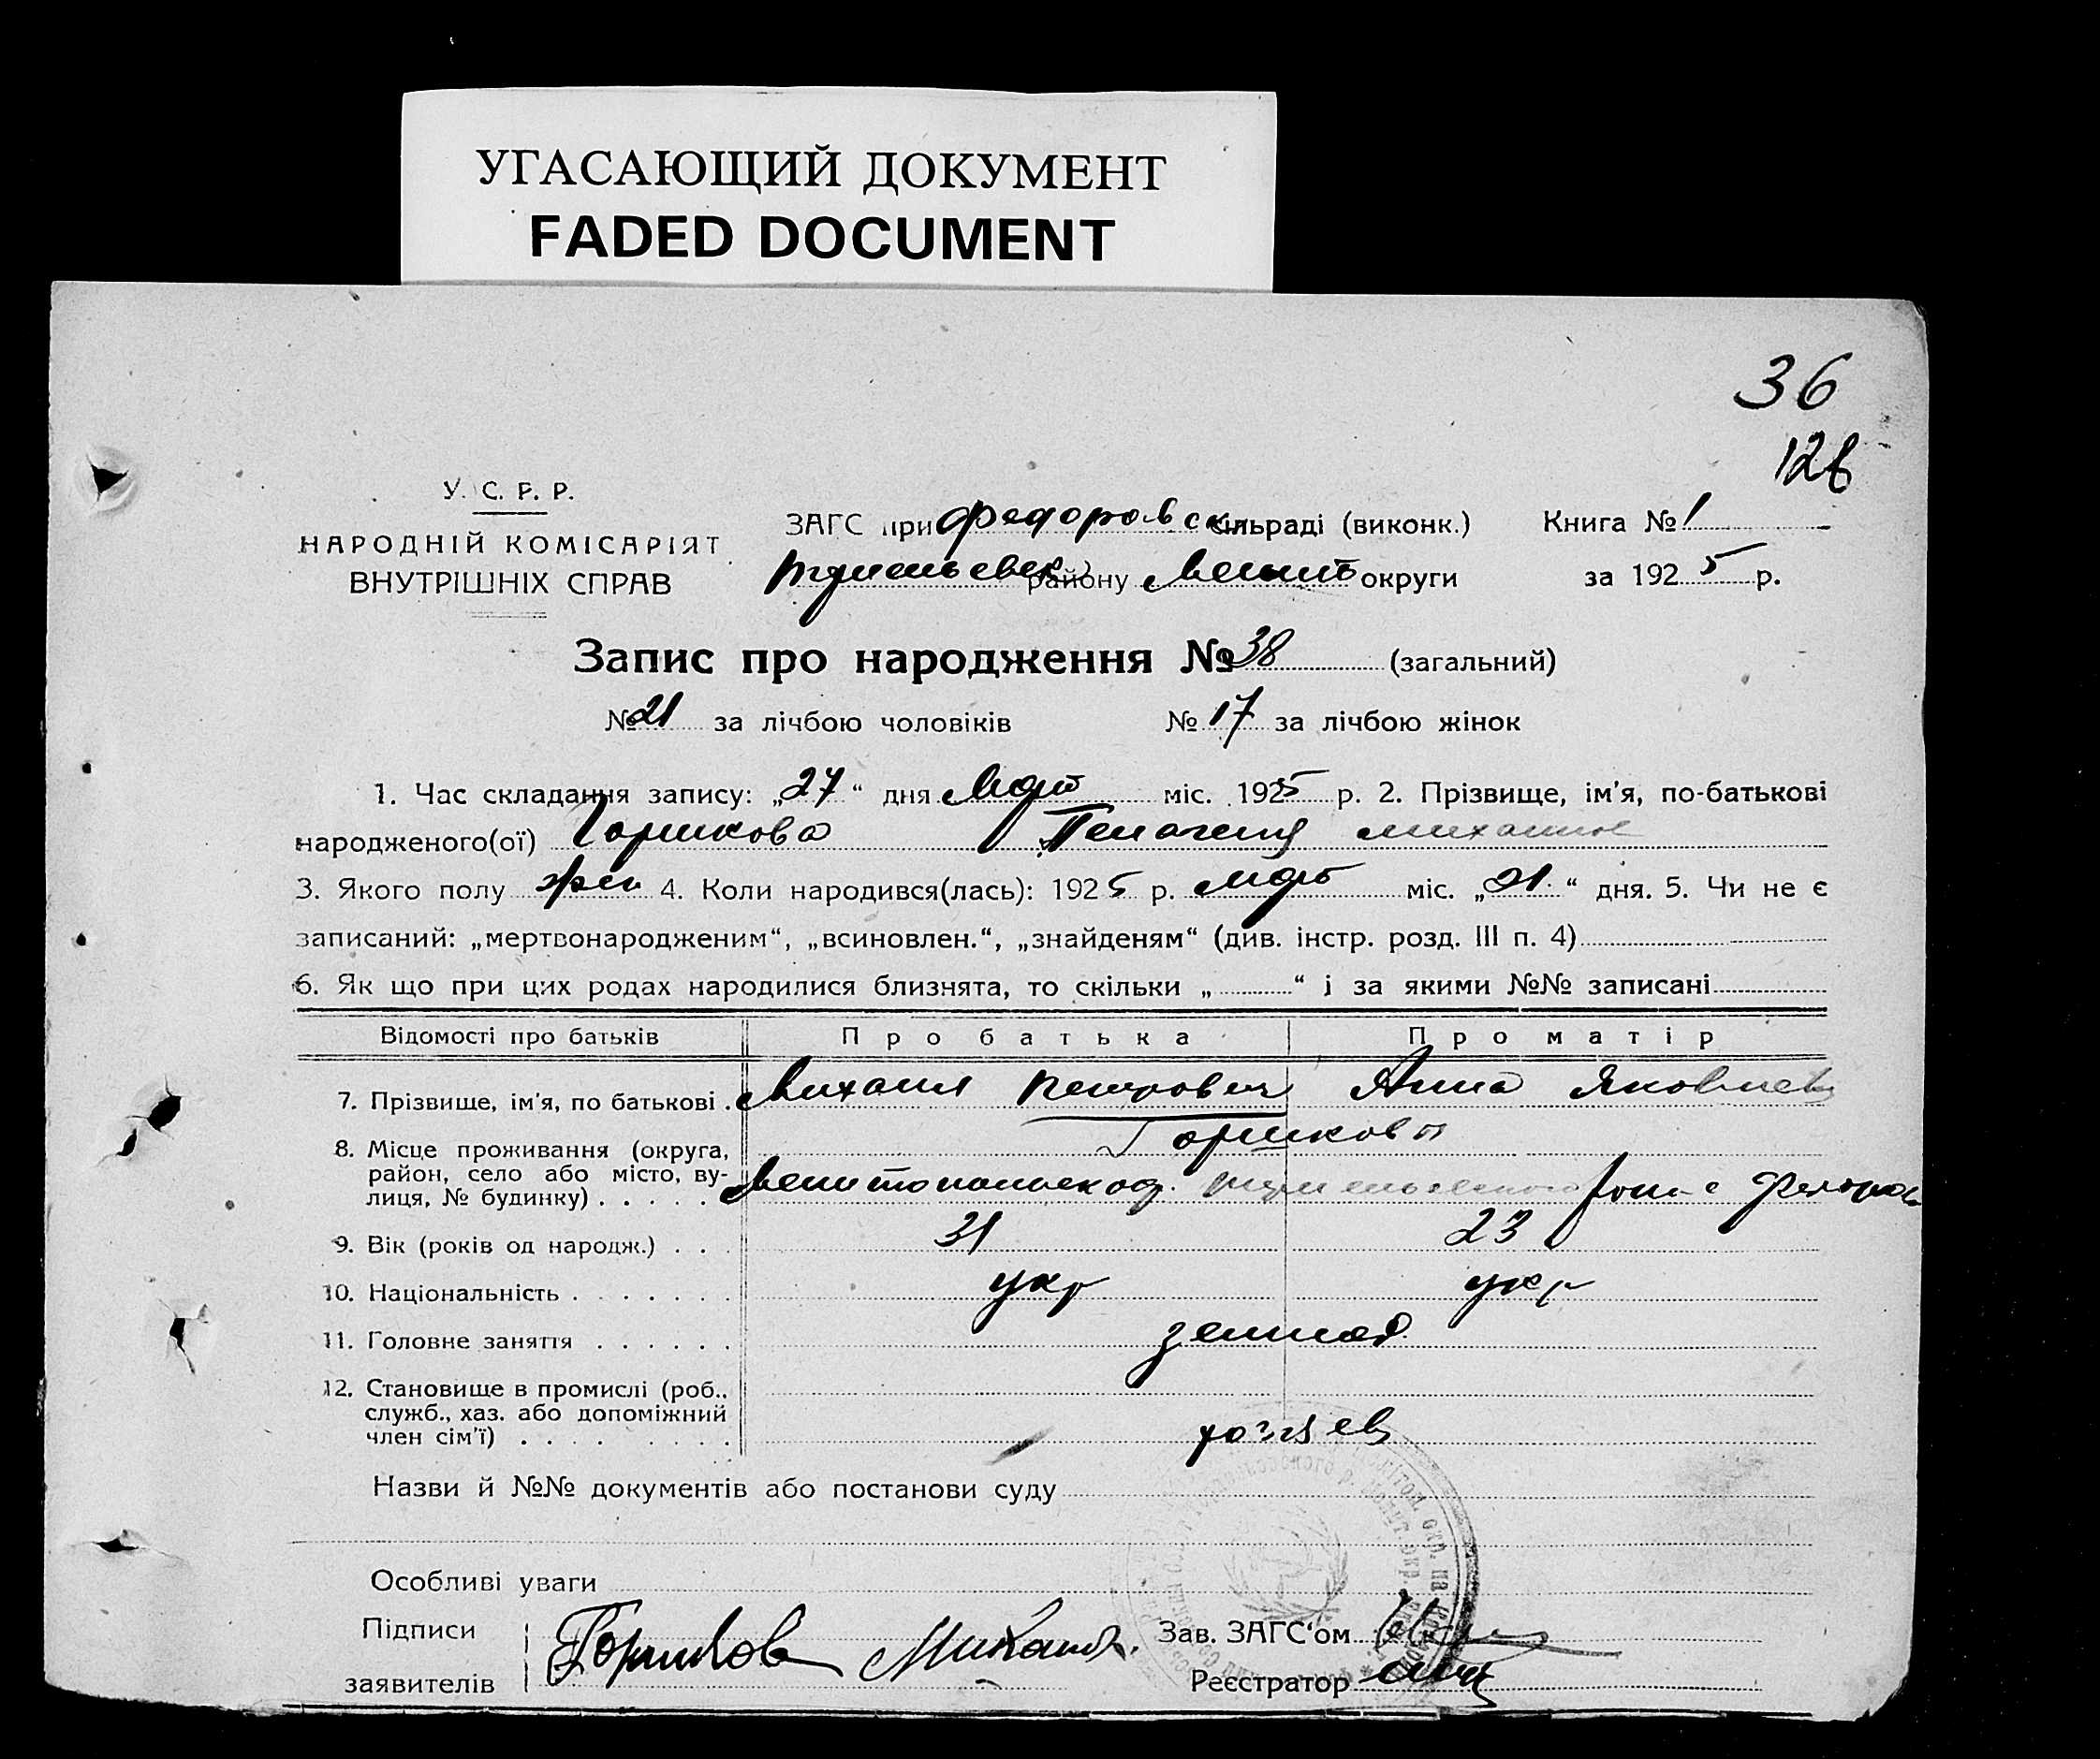 УГАСАЮЩИЙ ДОКУМЕНТ
FADED DOCUMENT
36
128
У. С. Р. Р.
НАРОДНІЙ КОМІСАРІЯТ
ВНУТРІШНІХ СПРАВ
ЗАГС при Федоровск сільраді (виконк.) Книга № 1
району Мелит округи за 1925 р.
Запис про народження № 38 (загальний)
№ 21 за лічбою чоловіків № 17 за лічбою жінок
1. Час складання запису: „27“ дня Март міс. 1925 р. 2. Прізвище, ім'я, по-батькові
народженого(ої) Горшкова Пелагея Михайлов
3. Якого полу жен 4. Коли народився(лась): 1925 р. Март міс. „21“ дня. 5. Чи не є
записаний: „мертвонародженим“, „всиновлен.“, „знайденям“ (див. інстр. розд. III п. 4)
6. Як що при цих родах народилися близнята, то скільки „ “ і за якими №№ записані
Відомості про батьків Про батька Про матір
7. Прізвище, ім'я, по батькові . Михаил Петрович Анна Яковлев
Горшковы
8. Місце проживання (округа,
район, село або місто, ву-
лиця, № будинку) . . . . . Мелитопольск окр. с Федоров
9. Вік (років од народж.) . . . 31 23
10. Національність . . . . . . . укр укр
11. Головне заняття . . . . . . землед.
12. Становище в промислі (роб.,
служб., хаз. або допоміжний
член сім'ї) . . . . . . . . . хозяев
Назви й №№ документів або постанови суду
Особливі уваги
Підписи Горшков Михаил. Зав. ЗАГС'ом
заявителів Реєстратор